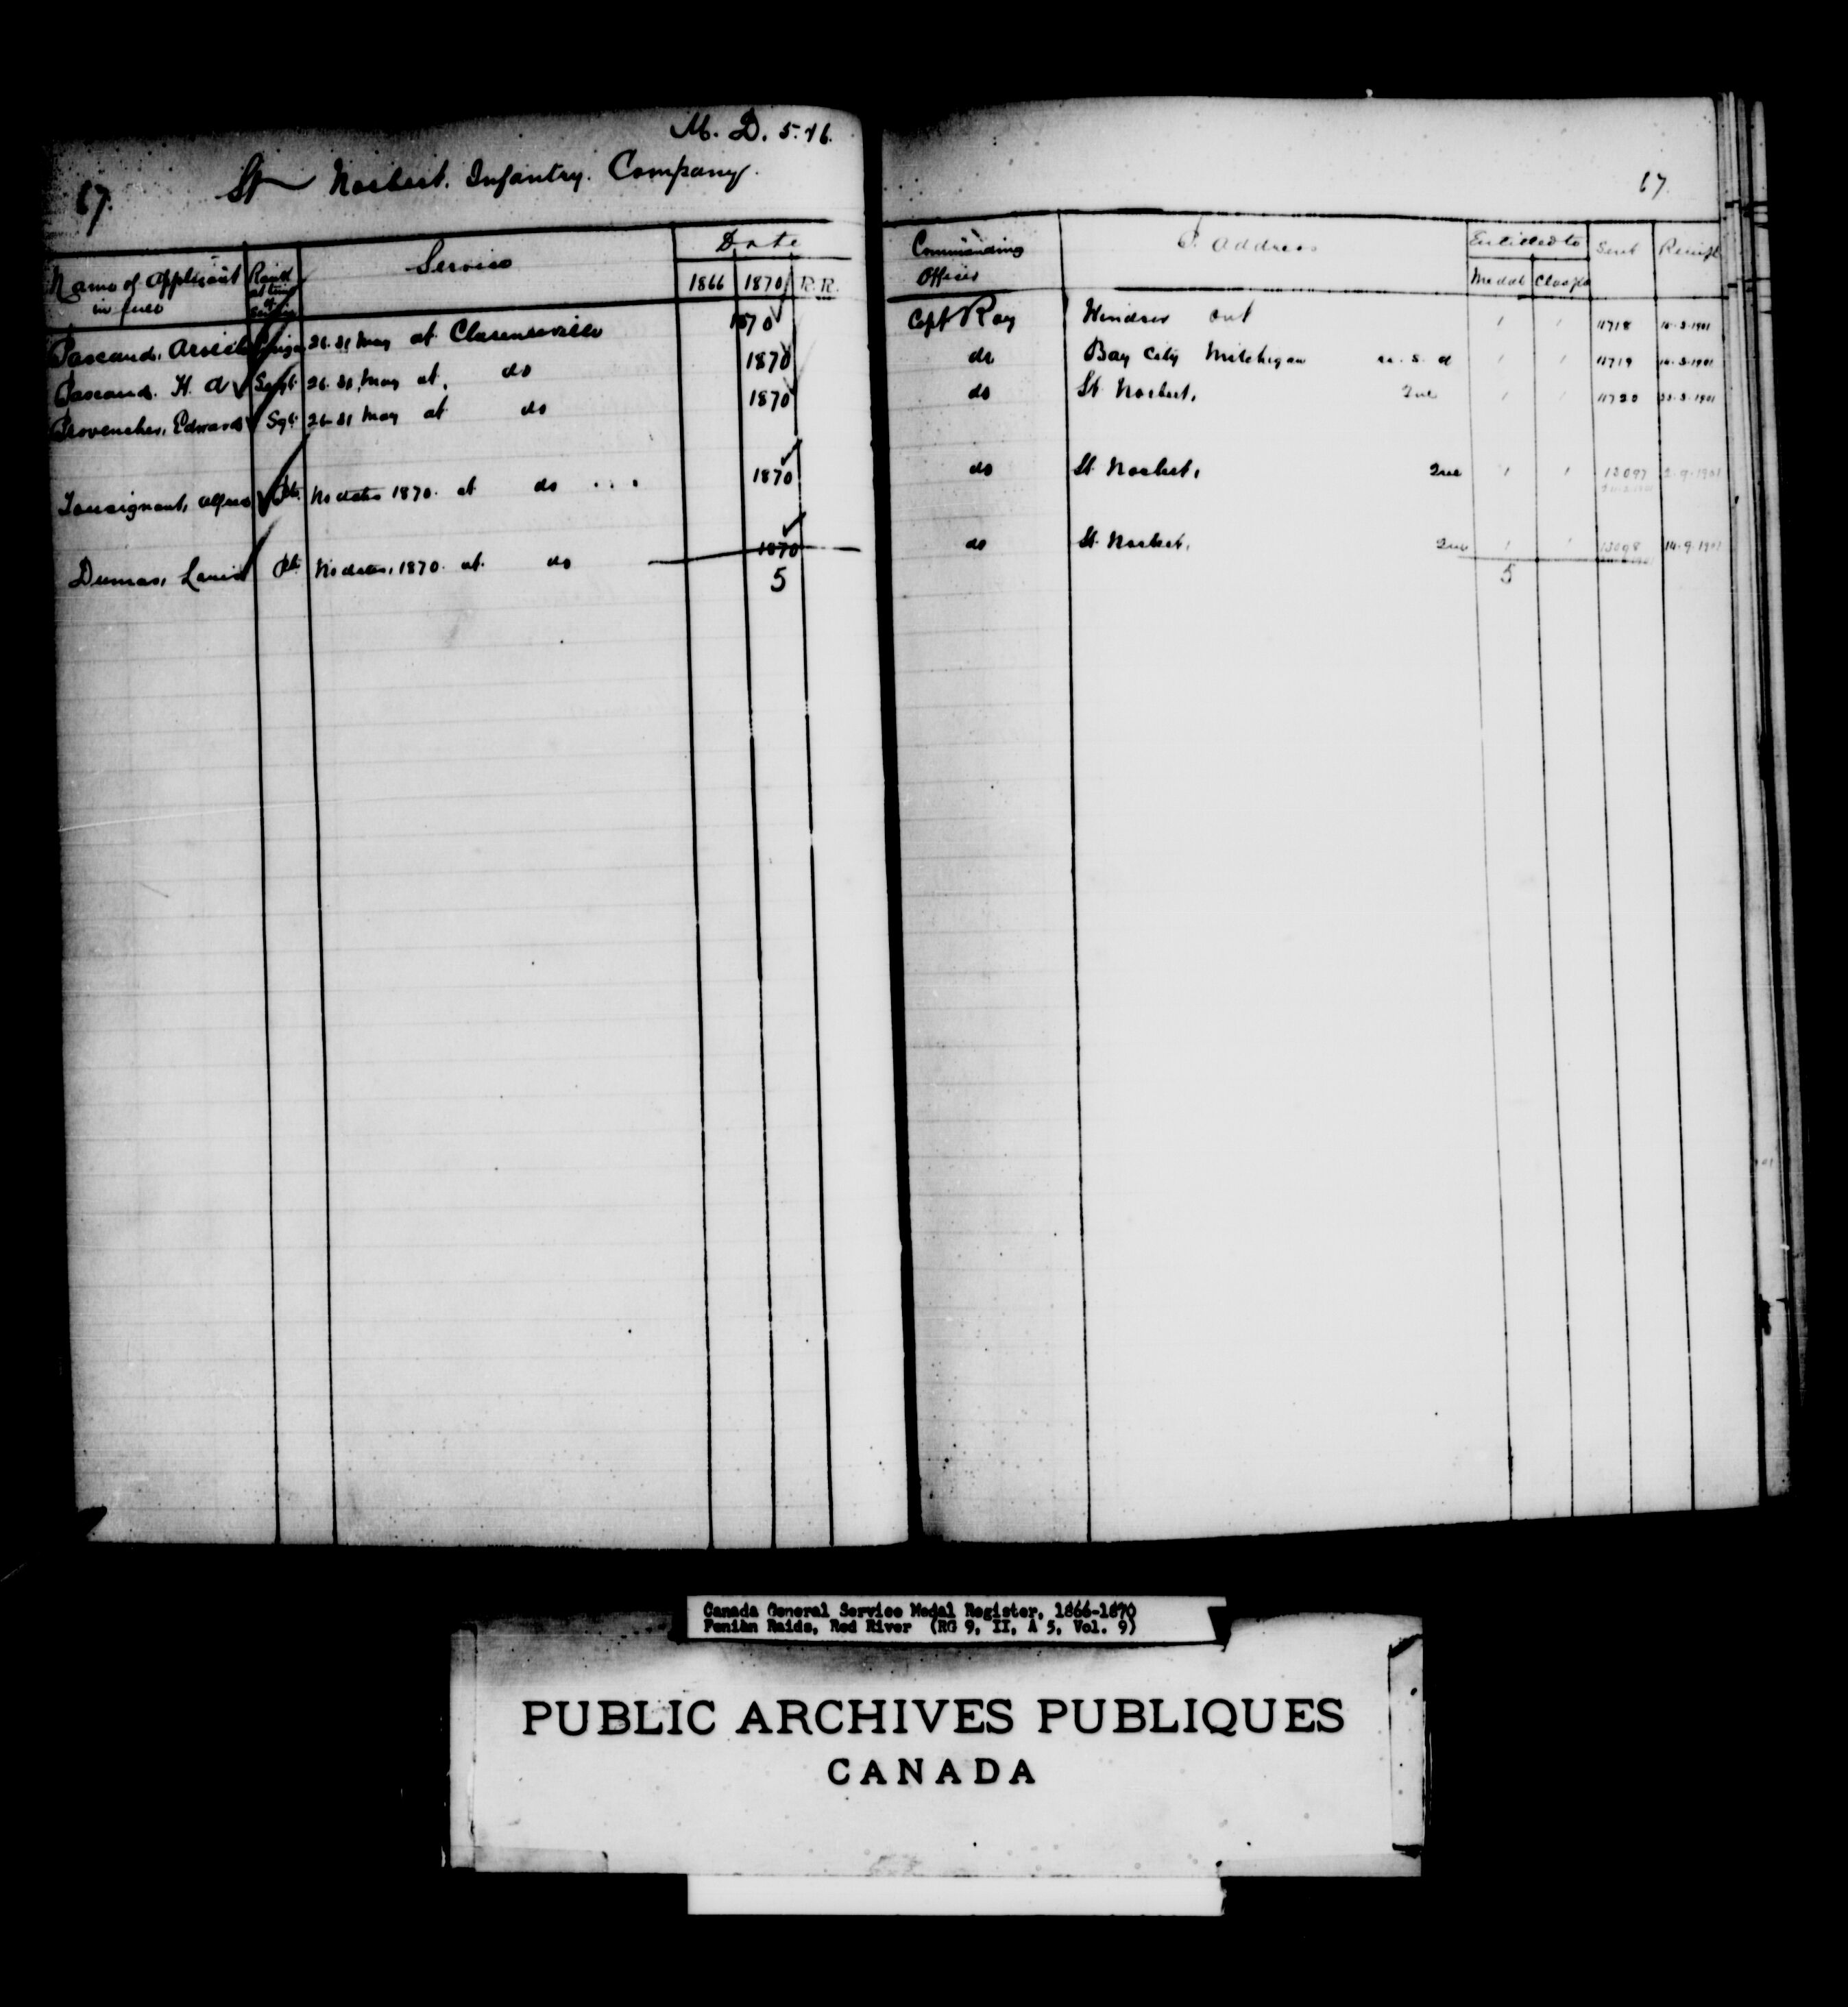 M. D. 5.
67.
St Norbert. Infantry. Company.
Name of Applicant in full
Rank at time of Service
Service
Date
1866 1870 R.R.
26.31 May at Clarenceville 1870
H. A Sergt 26.31, May at, do 1870
Provencher, Edward Sgt 26-31 May at do 1870
Pte No dates 1870. at do . . . 1870
Dumas, Pte No dates, 1870. at. do 1870
5
67
Commanding Officer
P. Address
Entitled to
Medal Clasps
Sent
Receipt
Capt Roy Windsor Ont 1 1 11718
do Bay City Mitchigan u. s. a 1 1 11719
do St. Norbert, Que 1 1 11720
do St. Norbert, Que 1 1 12097 2-9-1901
do St. Norbert, Que 1 1 12098 14-9-1901
5
Canada General Service Medal Register, 1866-1870
Fenian Raids, Red River (RG 9, II, A 5, Vol. 9)
PUBLIC ARCHIVES PUBLIQUES
CANADA